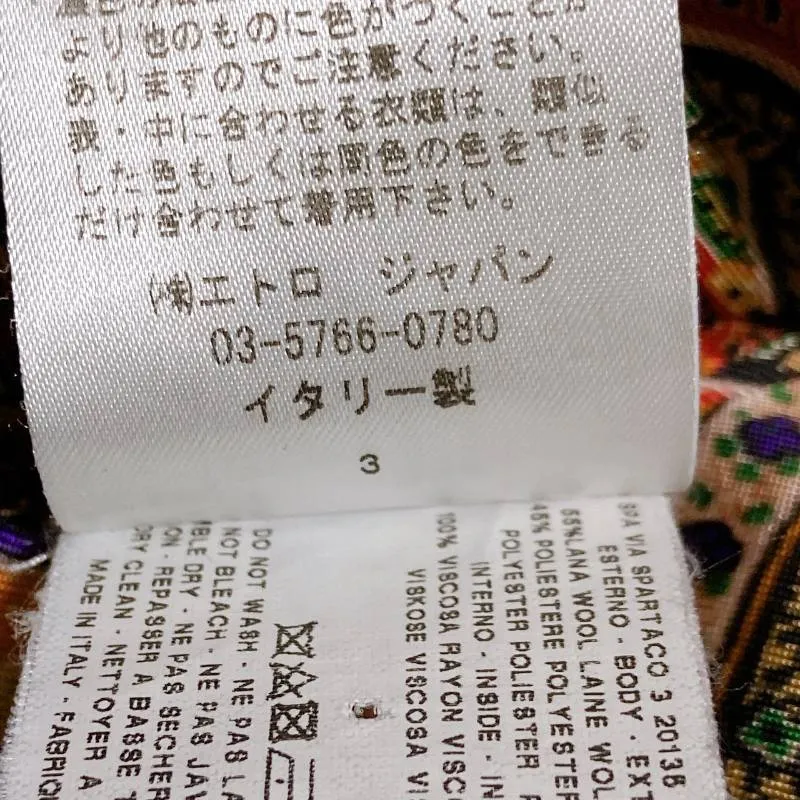 より他のものに色がつくことが
ありますのでご注意ください。
表・中に合わせる衣類は、類似
した色もしくは同色の色をできる
だけ合わせて着用下さい。
(株)エトロ ジャパン
03-5766-0780
イタリー製
3
SPA VIA SPARTACO 3 20138
ESTERNO - BODY - EXT
55%LANA WOOL LAINE WOL
45% POLIESTERE POLYESTER
POLYESTER POLIESTER
INTERNO - INSIDE - IN
100% VISCOSA RAYON VISCO
VISKOSE VISCOSA VIS
DO NOT WASH - NE PAS LA
NOT BLEACH - NE PAS JAV
BLE DRY - NE PAS SECHER
ON - REPASSER A BASSE T
DRY CLEAN - NETTOYER A
MADE IN ITALY - FABRIQ